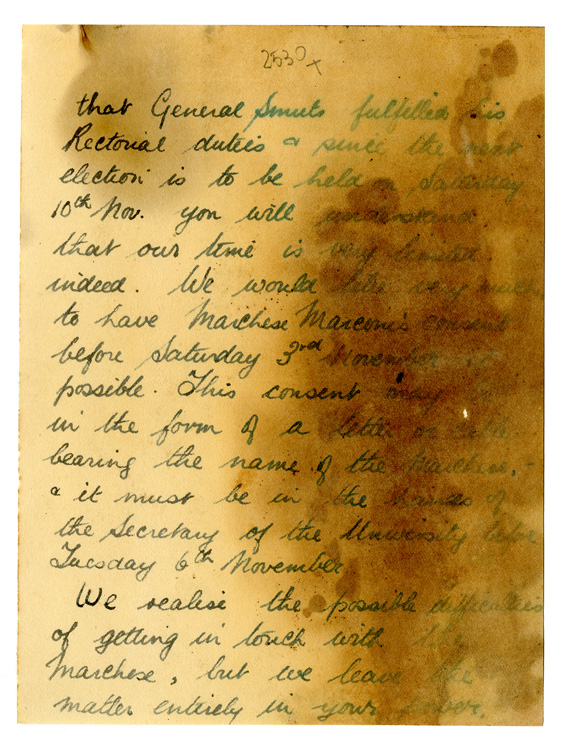 2530 x
that General Smuts fulfilled his
Rectorial duties & since the next
election is to be held on Saturday
10th Nov. you will understand
that our time is very limited
indeed. We would like very much
to have Marchese Marconi's consent
before Saturday 3rd November if
possible. This consent may be
in the form of a letter or cable
bearing the name of the Marchese, -
& it must be in the hands of
the Secretary of the University before
Tuesday 6th November
We realise the possible difficulties
of getting in touch with the
Marchese, but we leave the
matter entirely in your power.